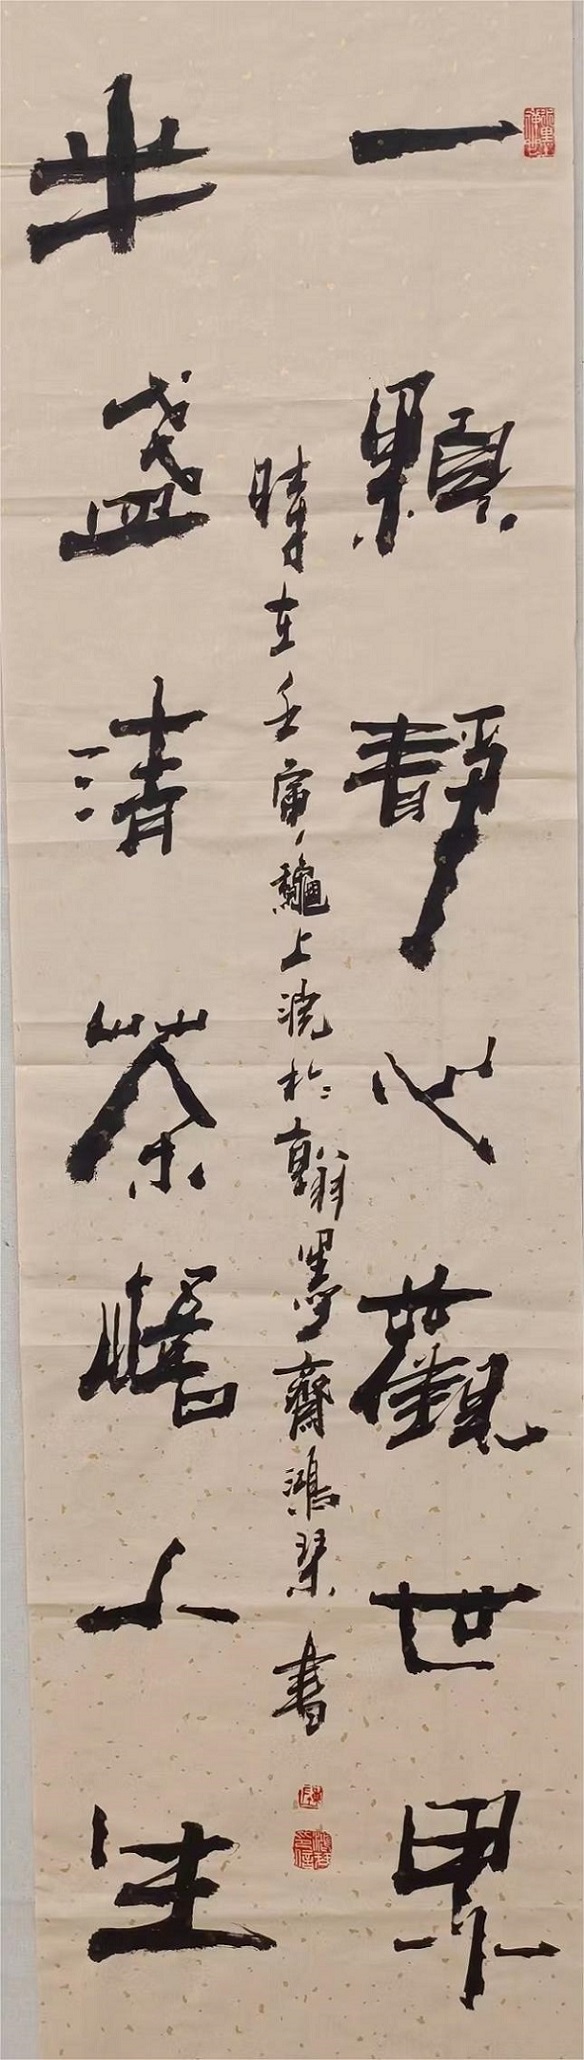 一顆靜心觀世界
半盞清茶瞻人生
時在壬寅龝上浣於翰墨齋鴻琴書